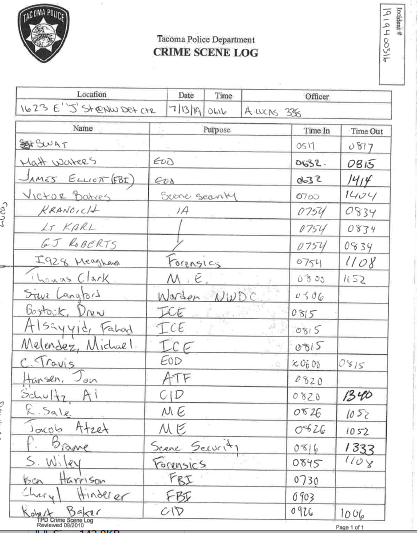 TACOMA POLICE
Incident #
1919400516
Tacoma Police Department
CRIME SCENE LOG
Location Date Time Officer
1623 E "J" St @NW Det Ctr 7/13/19 0616 A Lucas 335
Name Purpose Time In Time Out
SWAT 0517 0817
Matt Waters EOD 0632 0815
James Elliott (FBI) EOD 0632 1414
Victor Scene security 0700 1404
KRANCICH IA 0754 0834
LT KARL 0754 0834
GJ ROBERTS 0754 0834
I928 Forensics 0754 1108
Thomas Clark M.E. 0800 1152
Steve Langford Warden NWDC 0806
Bostock, Drew ICE 0815
Alsayyid, Fahad ICE 0815
Melendez, Michael ICE 0815
C. Travis EOD 0600 0815
Hansen, Jon ATF 0820
Schultz, Ai CID 0820 1340
R. Sale ME 0826 1052
Jacob Atzet ME 0826 1052
F. Brame Scene Security 0816 1333
S. Wiley Forensics 0845 1108
Ben Harrison FBI 0730
Cheryl Hinderer FBI 0903
Robert Baker CID 0926 1006
TPD Crime Scene Log
Reviewed 08/2010
Page 1 of 1